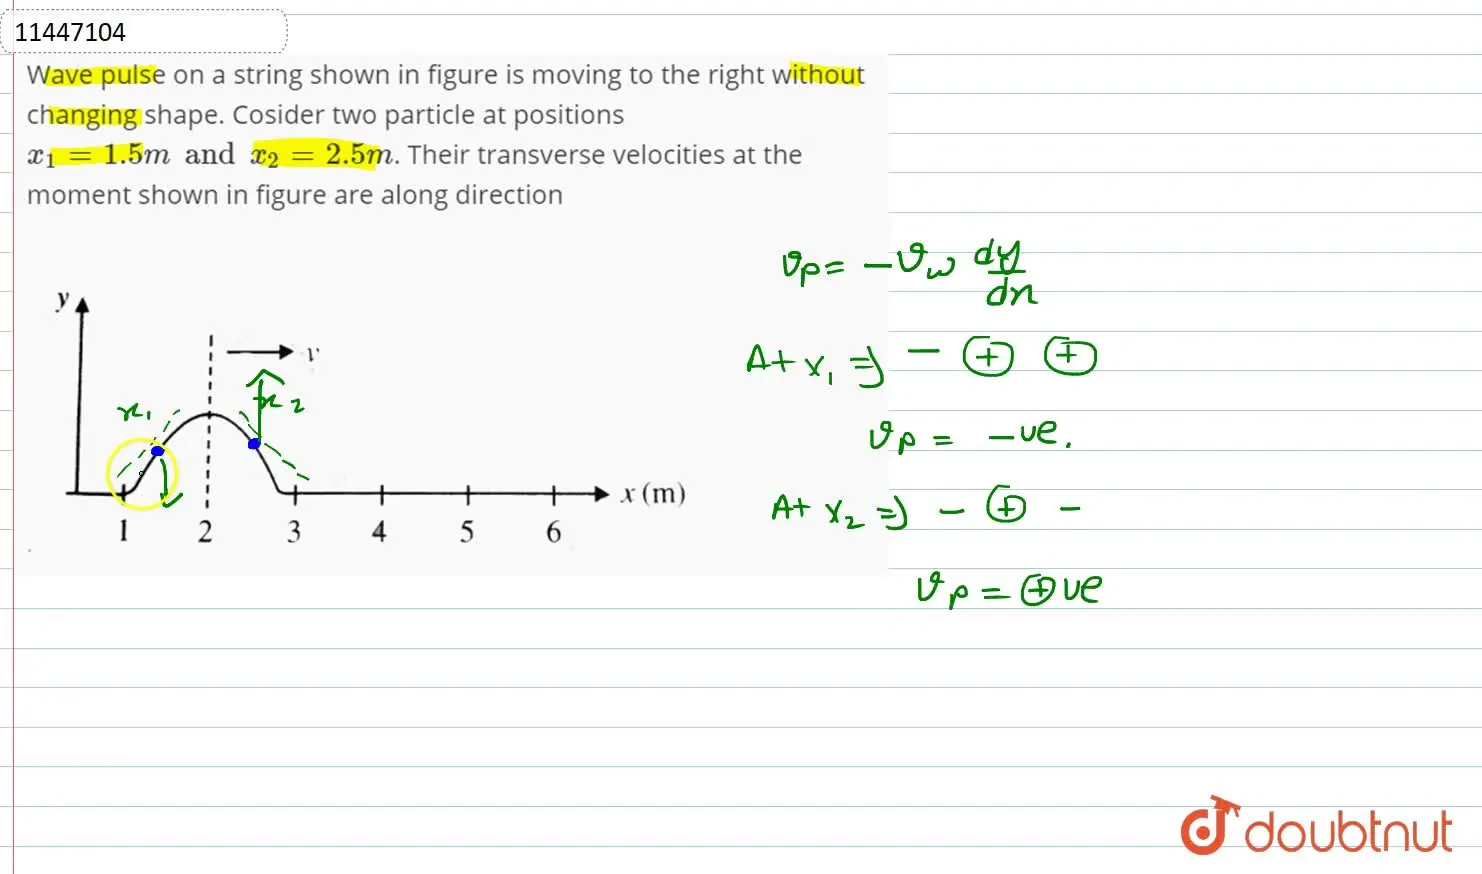 11447104
Wave pulse on a string shown in figure is moving to the right without
changing shape. Cosider two particle at positions
x₁ = 1.5m and x₂ = 2.5m. Their transverse velocities at the
moment shown in figure are along direction
y
v
x₁
x₂
x (m)
1 2 3 4 5 6
υp = -υw dy/dx
At x₁ ⇒ - ⊕ ⊕
υp = -ve.
At x₂ ⇒ - ⊕ -
υp = ⊕ve
doubtnut